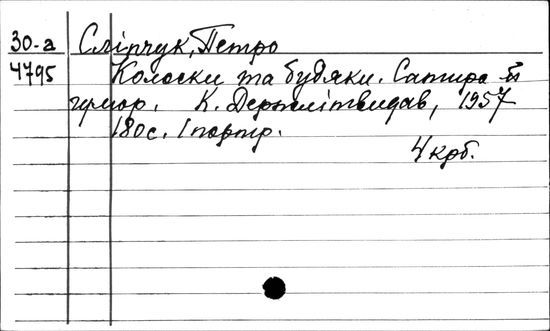 30-а Сліпчук, Петро
4795 Колоски та будяки. Сатира й
гумор. К. Держлітвидав, 1957
180с. 1 портр.
4 крб.